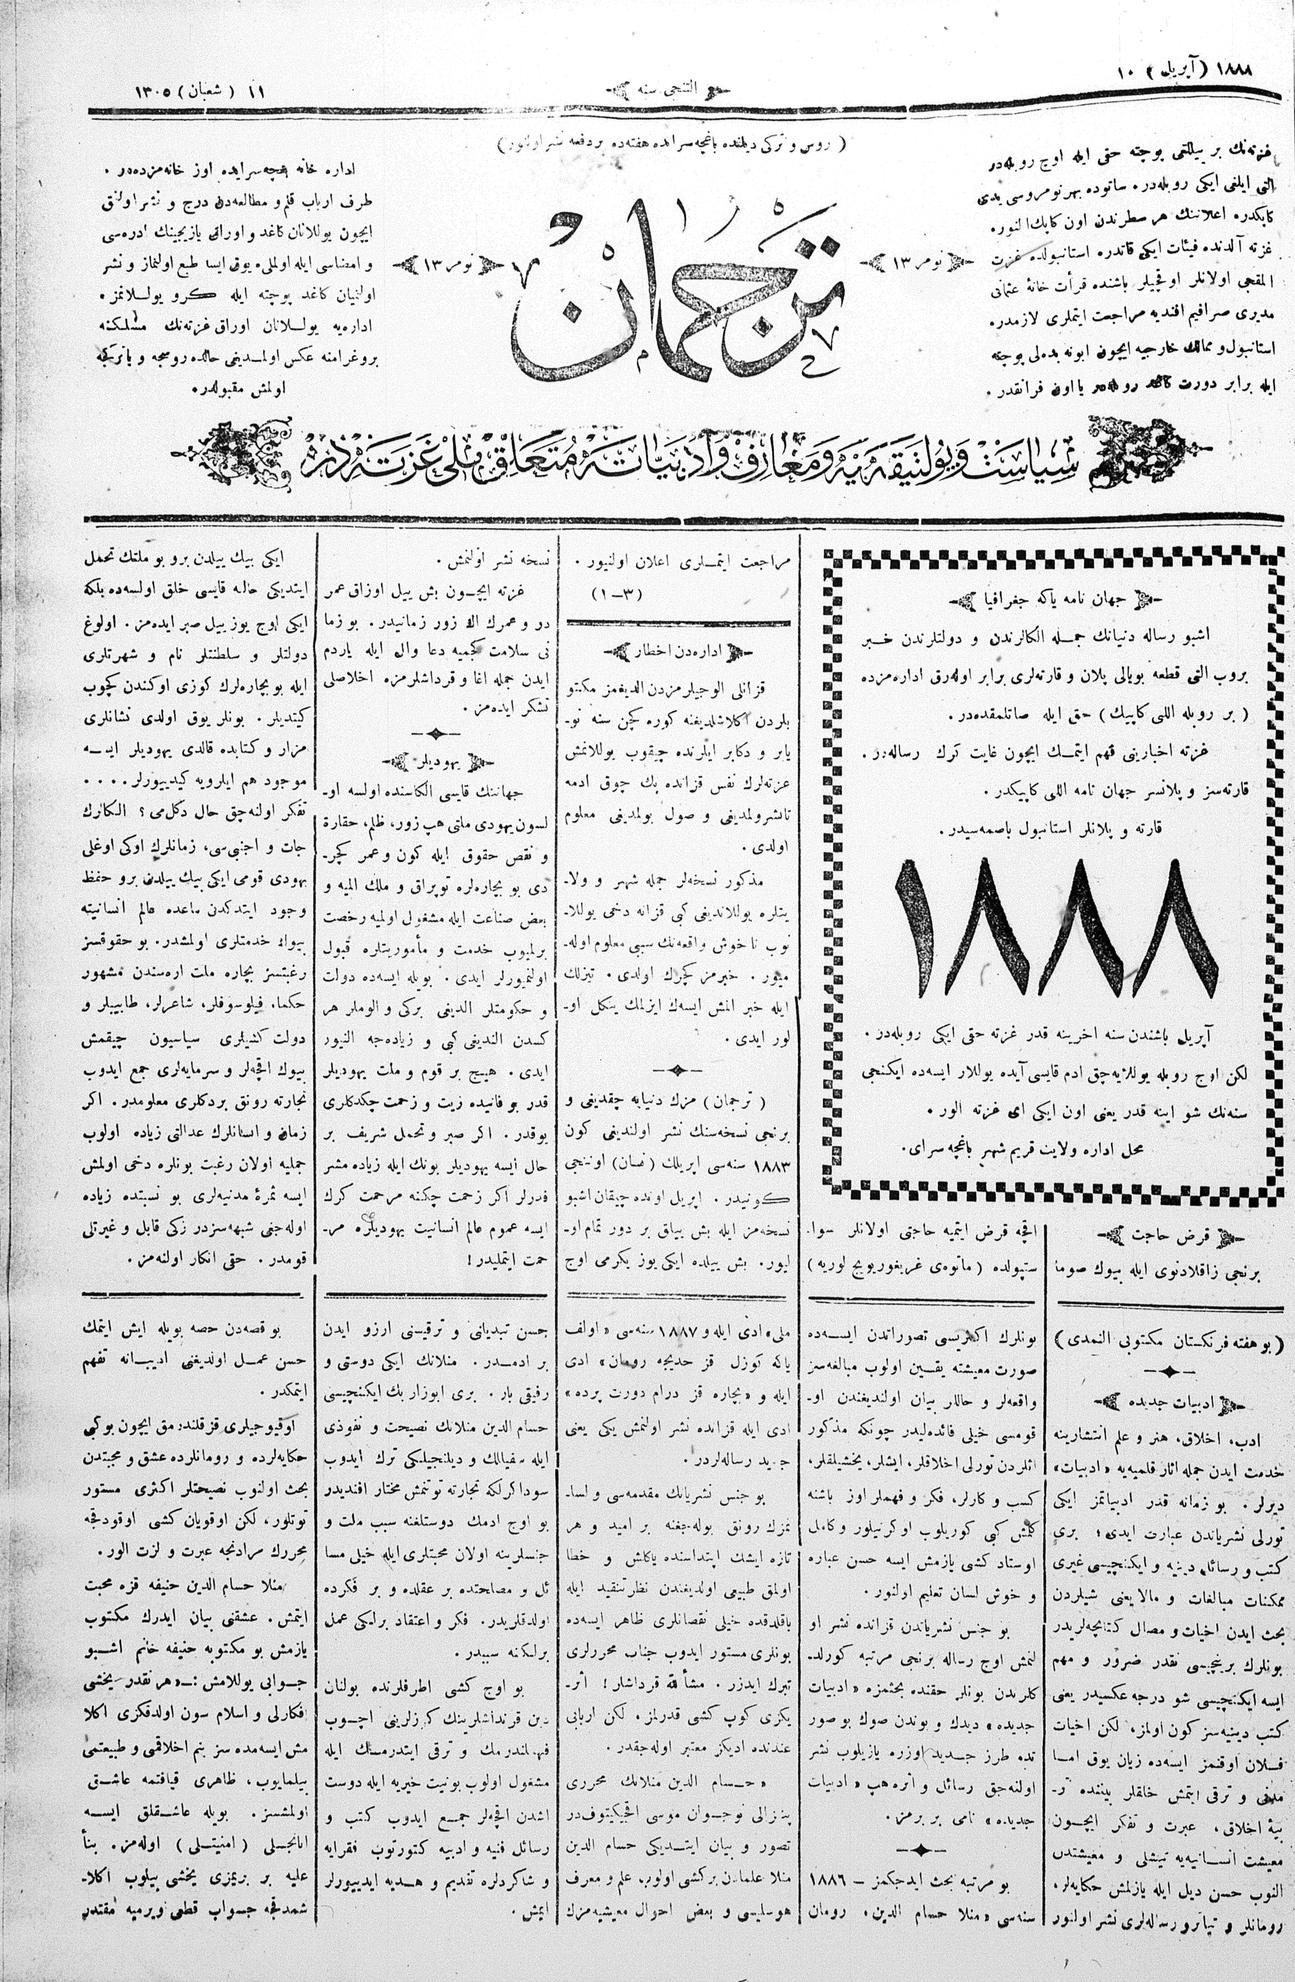 ١٨٨٨ (آپریل) ١٠
التنجی سنه
١١ (شعبان) ١٣٠٥
(روس و ترکی دیلنده باغچه سرایده هفته‌ده بر دفعه نشر اولنور)
غزته‌نك بر ییللغی پوچته حقی ایله اوچ روبله‌در
التی ایلغی ایکی روبله‌در. ساتوده بهر نومروسی یدی
کاپکدر. اعلاننك هر سطرندن اون کاپك النور.
غزته آلدنده فیئات ایکی قاتدر. استانبولده غزت
المقجی اولانلر اوقچیلر باشنده قرأت خانهٔ عثمانی
مدیری صرافیم افندیه مراجعت ایتملری لازمدر.
استانبول و ممالك خارجیه ایچون ابونه بده‌لی پوچته
ایله برابر دورت کاغد روبله‌در یا اون فرانقدر.
نومر ١٣
ترجمان
نومر ١٣
اداره خانه بغچه سرایده اوز خانه مزده‌در.
طرف ارباب قلم و مطالعه‌دن درج و نشر اولنق
ایچون یوللانان کاغد و اوراق یازیجینك ادره‌سی
و امضاسی ایله اولملی. یوق ایسا طبع اولنماز و نشر
اولنیان کاغد پوچته ایله کرو یوللانمز.
اداره‌یه یوللانان اوراق غزته‌نك مسلکنه
پروغرامنه عکس اولمدیغی حالده روسجه و یا ترکجه
اولمش مقبولدر.
سیاست و پولتیقه‌یه و معارف و ادبیاته متعلق ملی غزته‌در
جهان نامه یا که جغرافیا
اشبو رساله دنیانك جمله الکالرندن و دولتلرندن خبر
بروب التی قطعه بویالی پلان و قارته‌لری برابر اوله‌رق اداره‌مزده
(بر روبله اللی کاپیك) حق ایله صاتلمقده‌در.
غزته اخبارینی فهم ایتمك ایچون غایت کرك رساله‌در.
قارته‌سز و پلانسز جهان نامه اللی کاپیکدر.
قارته و پلانلر استانبول باصمه‌سیدر.
١٨٨٨
آپریل باشندن سنه اخرینه قدر غزته حقی ایکی روبله‌در.
لکن اوچ روبله یوللایه‌جق ادم قایسی آیده یوللار ایسه‌ده ایکنجی
سنه‌نك شو اینه قدر یعنی اون ایکی ای غزته الور.
محل اداره ولایت قریم شهر باغچه سرای.
قرض حاجت
برنجی زاقلادنوی ایله بیوك صوما
اقچه قرض ایتمیه حاجتی اولانلر سوا-
ستپولده (ماتوه‌ی غریغوریویچ لوریه)
مراجعت ایتملری اعلان اولنیور.
(٣-١)
اداره‌دن اخطار
قزانلی الوجیلرمزدن الدیغمز مکتو
بلردن اکلاشلدیغنه کوره کچن سنه نو-
یابر و دکابر ایلرنده چیقوب یوللانمش
غزته‌لرك نفس قزانده پك چوق ادمه
تاپشرولمدیغی و صول بولمدیغی معلوم
اولدی.
مذکور نسخه‌لر جمله شهر و ولا-
یتلره یوللاندیغی کبی قزانه دخی یوللا-
نوب ناخوش واقعه‌نك سببی معلوم اوله-
میور. خبرمز کچرك اولدی. تیزلك
ایله خبر المش ایسه‌ك ایزلمك ینکل او-
لور ایدی.
(ترجمان) مزك دنیایه چقدیغی و
برنجی نسخه‌سنك نشر اولندیغی کون
١٨٨٣ سنه‌سی اپریلك (نسان) اوننجی
کونیدر. اپریل اونده چیقان اشبو
نسخه‌مز ایله بش ییلق بر دور تمام او-
لیور. بش ییلده ایکی یوز یکرمی اوچ
نسخه نشر اولنمش.
غزته ایچون بش ییل اوزاق عمر
در و عمرك اك زور زمانیدر. بو زما
نی سلامت کچمیه دعا و ال ایله یاردم
ایدن جمله اغا و قرداشلرمزه اخلاصلی
تشکر ایده‌مز.
یهودیلر
جهاننك قایسی الکاسنده اولسه او-
لسون یهودی ملتی هپ زور، ظلم، حقارة
و نقص حقوق ایله کون و عمر کچر-
دی بو بچاره‌لره توپراق و ملك المیه و
بعض صناعت ایله مشغول اولمیه رخصت
برلمیوب خدمت و مأموریتلره قبول
اولنمیورلر ایدی. بویله ایسه‌ده دولت
و حکومتلر الدیغی برکی و الوملر هر
کسدن الندیغی کبی و زیاده‌جه النیور
ایدی. هیچ بر قوم و ملت یهودیلر
قدر بو فانیده زیت و زحمت چکدکلری
یوقدر. اکر صبر و تحمل شریف بر
حال ایسه یهودیلر بونك ایله زیاده مشر
فدرلر اکر زحمت چکنه مرحمت کرك
ایسه عموم عالم انسانیت یهودیلره مر-
حمت ایتملیدر!
ایکی بیك ییلدن برو بو ملتك تحمل
ایتدیکی حاله قایسی خلق اولسه‌ده بلکه
ایکی اوچ یوز ییل صبر ایده‌مز. اولوغ
دولتلر و سلطنتلر نام و شهرتلری
ایله بو بچاره‌لرك کوزی اوکندن کچوب
کیتدیلر. بونلر یوق اولدی نشانلری
مزار و کتابده قالدی یهودیلر ایسه
موجود هم ایلرویه کیدییورلر....
تفکر اولنه‌جق حال دکلمی؟ الکالرك
جات و اجنبی‌سی، زمانلرك اوکی اوغلی
یهودی قومی ایکی بیك ییلدن برو حفظ
وجود ایتدکدن ماعده عالم انسانیته
بیوك خدمتلری اولمشدر. بو حقوقسز
رغبتسز بچاره ملت اره‌سندن مشهور
حکما، فیلوسوفلر، شاعرلر، طابیبلر و
دولت کشیلری سیاسیون چیقمش
بیوك اقچه‌لر و سرمایه‌لری جمع ایدوب
تجارته رونق بردکلری معلومدر. اکر
زمان و انسانلرك عدالتی زیاده اولوب
جملیه اولان رغبت بونلره دخی اولمش
ایسه ثمرهٔ مدنیه‌لری بو نسبتده زیاده
اوله‌جغی شبهه‌سزدر زکی قابل و غیرتلی
قومدر. حقی انکار اولنه‌مز.
(بو هفته فرنکستان مکتوبی النمدی)
ادبیات جدیده
ادب، اخلاق، هنر و علم انتشارینه
خدمت ایدن جمله اثار قلمیه‌یه «ادبیات»
دیرلر. بو زمانه قدر ادبیاتمز ایکی
تورلی نشریاندن عبارت ایدی؛ بری
کتب و رسائل دینیه و ایکنچیسی غیری
ممکنات مبالغات و مالایعنی شیلردن
بحث ایدن اخیات و مصال کتابچه‌لریدر
بونلرك برینچیسی نقدر ضرور و مهم
ایسه ایکنچیسی شو درجه عکسیدر یعنی
کتب دینیه‌سز کون اولمز، لکن اخیات
فلان اوقنمز ایسه‌ده زیان یوق اما
مدنی و ترقی ایتمش خالقلر بیننده تر-
بیهٔ اخلاق، عبرت و تفکر ایچون
معیشت انسانیه‌یه تیشلی و معیشتدن
النوب حسن دیل ایله یازلمش حکایه‌لر،
رومانلر و تیاترو رساله‌لری نشر اولنور
بونلرك اکثریسی تصوراتدن ایسه‌ده
صورت معیشته یقین اولوب مبالغه‌سز
واقعه‌لر و حاللر بیان اولندیغندن او-
قومسی خیلی فائده‌لیدر چونکه مذکور
اثلردن تورلی اخلاقلر، ایشلر، یخشیلقلر،
کسب و کارلر، فکر و فهملر اوز باشنه
کلمش کبی کوریلوب اوکرنیلور و کامل
اوستاد کشی یازمش ایسه حسن عباره
و خوش لسان تعلیم اولنور.
بو جنس نشریاندن قزانده نشر او
لنمش اوچ رساله برنجی مرتبه کورلد-
کلرندن بونلر حقنده بحثمزه «ادبیات
جدیده» دیدك و بوندن صوك بو صور
تده طرز جدید اوزره یازیلوب نشر
اولنه‌جق رسائل و اثره هپ «ادبیات
جدیده» نامی بر برمز.
بو مرتبه بحث ایدجکمز - ١٨٨٦
سنه‌سی «منلا حسام الدین» رومان
ملی» ادی ایله و ١٨٨٧ سنه‌سی «اولف
یا که کوزل قز حدیجه رومان» ادی
ایله و «بچاره قز درام دورت پرده»
ادی ایله قزانده نشر اولنمش یکی یعنی
جدید رساله‌لردر.
بو جنس نشریاتك مقدمه‌سی و لسا-
نمزك رونق بوله‌جغنه بر امید و هر
تازه ایشك ابتداسنده یاکلش و خطا
اولمق طبیعی اولدیغندن نظر تنقید ایله
باقلدقده خیلی نقصانلری ظاهر ایسه‌ده
بونلری مستور ایدوب جناب محررلری
تبرك ایدرز. مشأ الله قرداشلر! اثر-
یکزی کوپ کشی قدرلمز. لکن اربابی
عندنده ادیکز معتبر اوله‌جقدر.
«حسام الدین منلا»نك محرری
پنزالی نوجوان موسی اقجیکیتوف‌در
تصور و بیان ایتدیکی حسام الدین
منلا علمادن بر کشی اولور، علم و معرف
هوسلیسی و بعض احوال معیشیه‌مزك
حسن تبدیاتی و ترقیسنی ارزو ایدن
بر ادمدر. منلانك ایکی دوستی و
رفیقی بار. بری ابوزار بك ایکنچیسی
حسام الدین منلانك نصیحت و نفوذی
ایله سفیاللك و دیلنجیلیکی ترك ایدوب
سوداکرلکه تجارته توتنمش مختار افندیدر
بو اوچ ادمك دوستلغنه سبب ملت و
جنسلرینه اولان محبتلری ایله خیلی مسا
ئل و مصلحتده بر عقلده و بر فکرده
اولدقلریدر. فکر و اعتقاد برلمکی عمل
برلمکنه سببدر.
بو اوچ کشی اطرفلرنده بولنان
دین قرنداشلرینك کوزلرینی اچوب
فهملندرمك و ترقی ایتدرمك ایله
مشغول اولوب بونیت خیریه ایله دوست
اشدن اقچه‌لر جمع ایدوب کتب و
رسائل فنیه و ادبیه کتورتوب فقرایه
و شاکردلره تقدیم و هدیه ایدییورلر
ایمش.
بو قصه‌دن حصه بویله ایش ایتمك
حسن عمل اولدیغنی ادیبانه تفهم
ایتمکدر.
اوقیوجیلری قزقلندرمق ایچون بو کبی
حکایه‌لرده و رومانلرده عشق و محبتدن
بحث اولنوب نصیحتلر اکثری مستور
توتلور، لکن اوقویان کشی اوقودقجه
محررك مرادنجه عبرت و لزت الور.
منلا حسام الدین حنیفه قزه محبت
ایتمش. عشقنی بیان ایدرك مکتوب
یازمش بو مکتوبه حنیفه خانم اشبو
جوابی یوللامش:- «هر نقدر یخشی
افکارلی و اسلام سون اولدقکزی اکلا
مش ایسه‌مده سز بنم اخلاقمی و طبیعتمی
بیلمایوب، ظاهری قیافتمه عاشق
اولمشسز. بویله عاشقلق ایسه
انانجلی (امنیتلی) اوله‌مز. بنأ
علیه بر بریمزی یخشی بیلوب اکلا-
شمدقچه جواب قطعی ویرمیه مقتدر